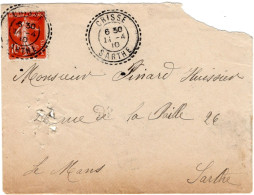 CRISSÉ
6 30
11-4
10
SARTHE
Monsieur Pinard Huissier
Rue de la Paille 26
Le Mans
Sarthe